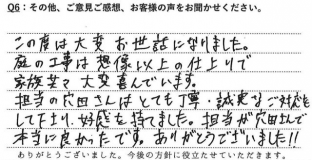 Q6：その他、ご意見ご感想、お客様の声をお聞かせください。
この度は大変お世話になりました。
庭の工事は想像以上の仕上りで
家族共々大変喜んでいます。
担当の穴田さんはとても丁寧・誠実なご対応を
して下さり、好感を持てました。担当が穴田さんで
本当に良かったです。ありがとうございました!!
ありがとうございました。今後の方針に役立たせていただきます。